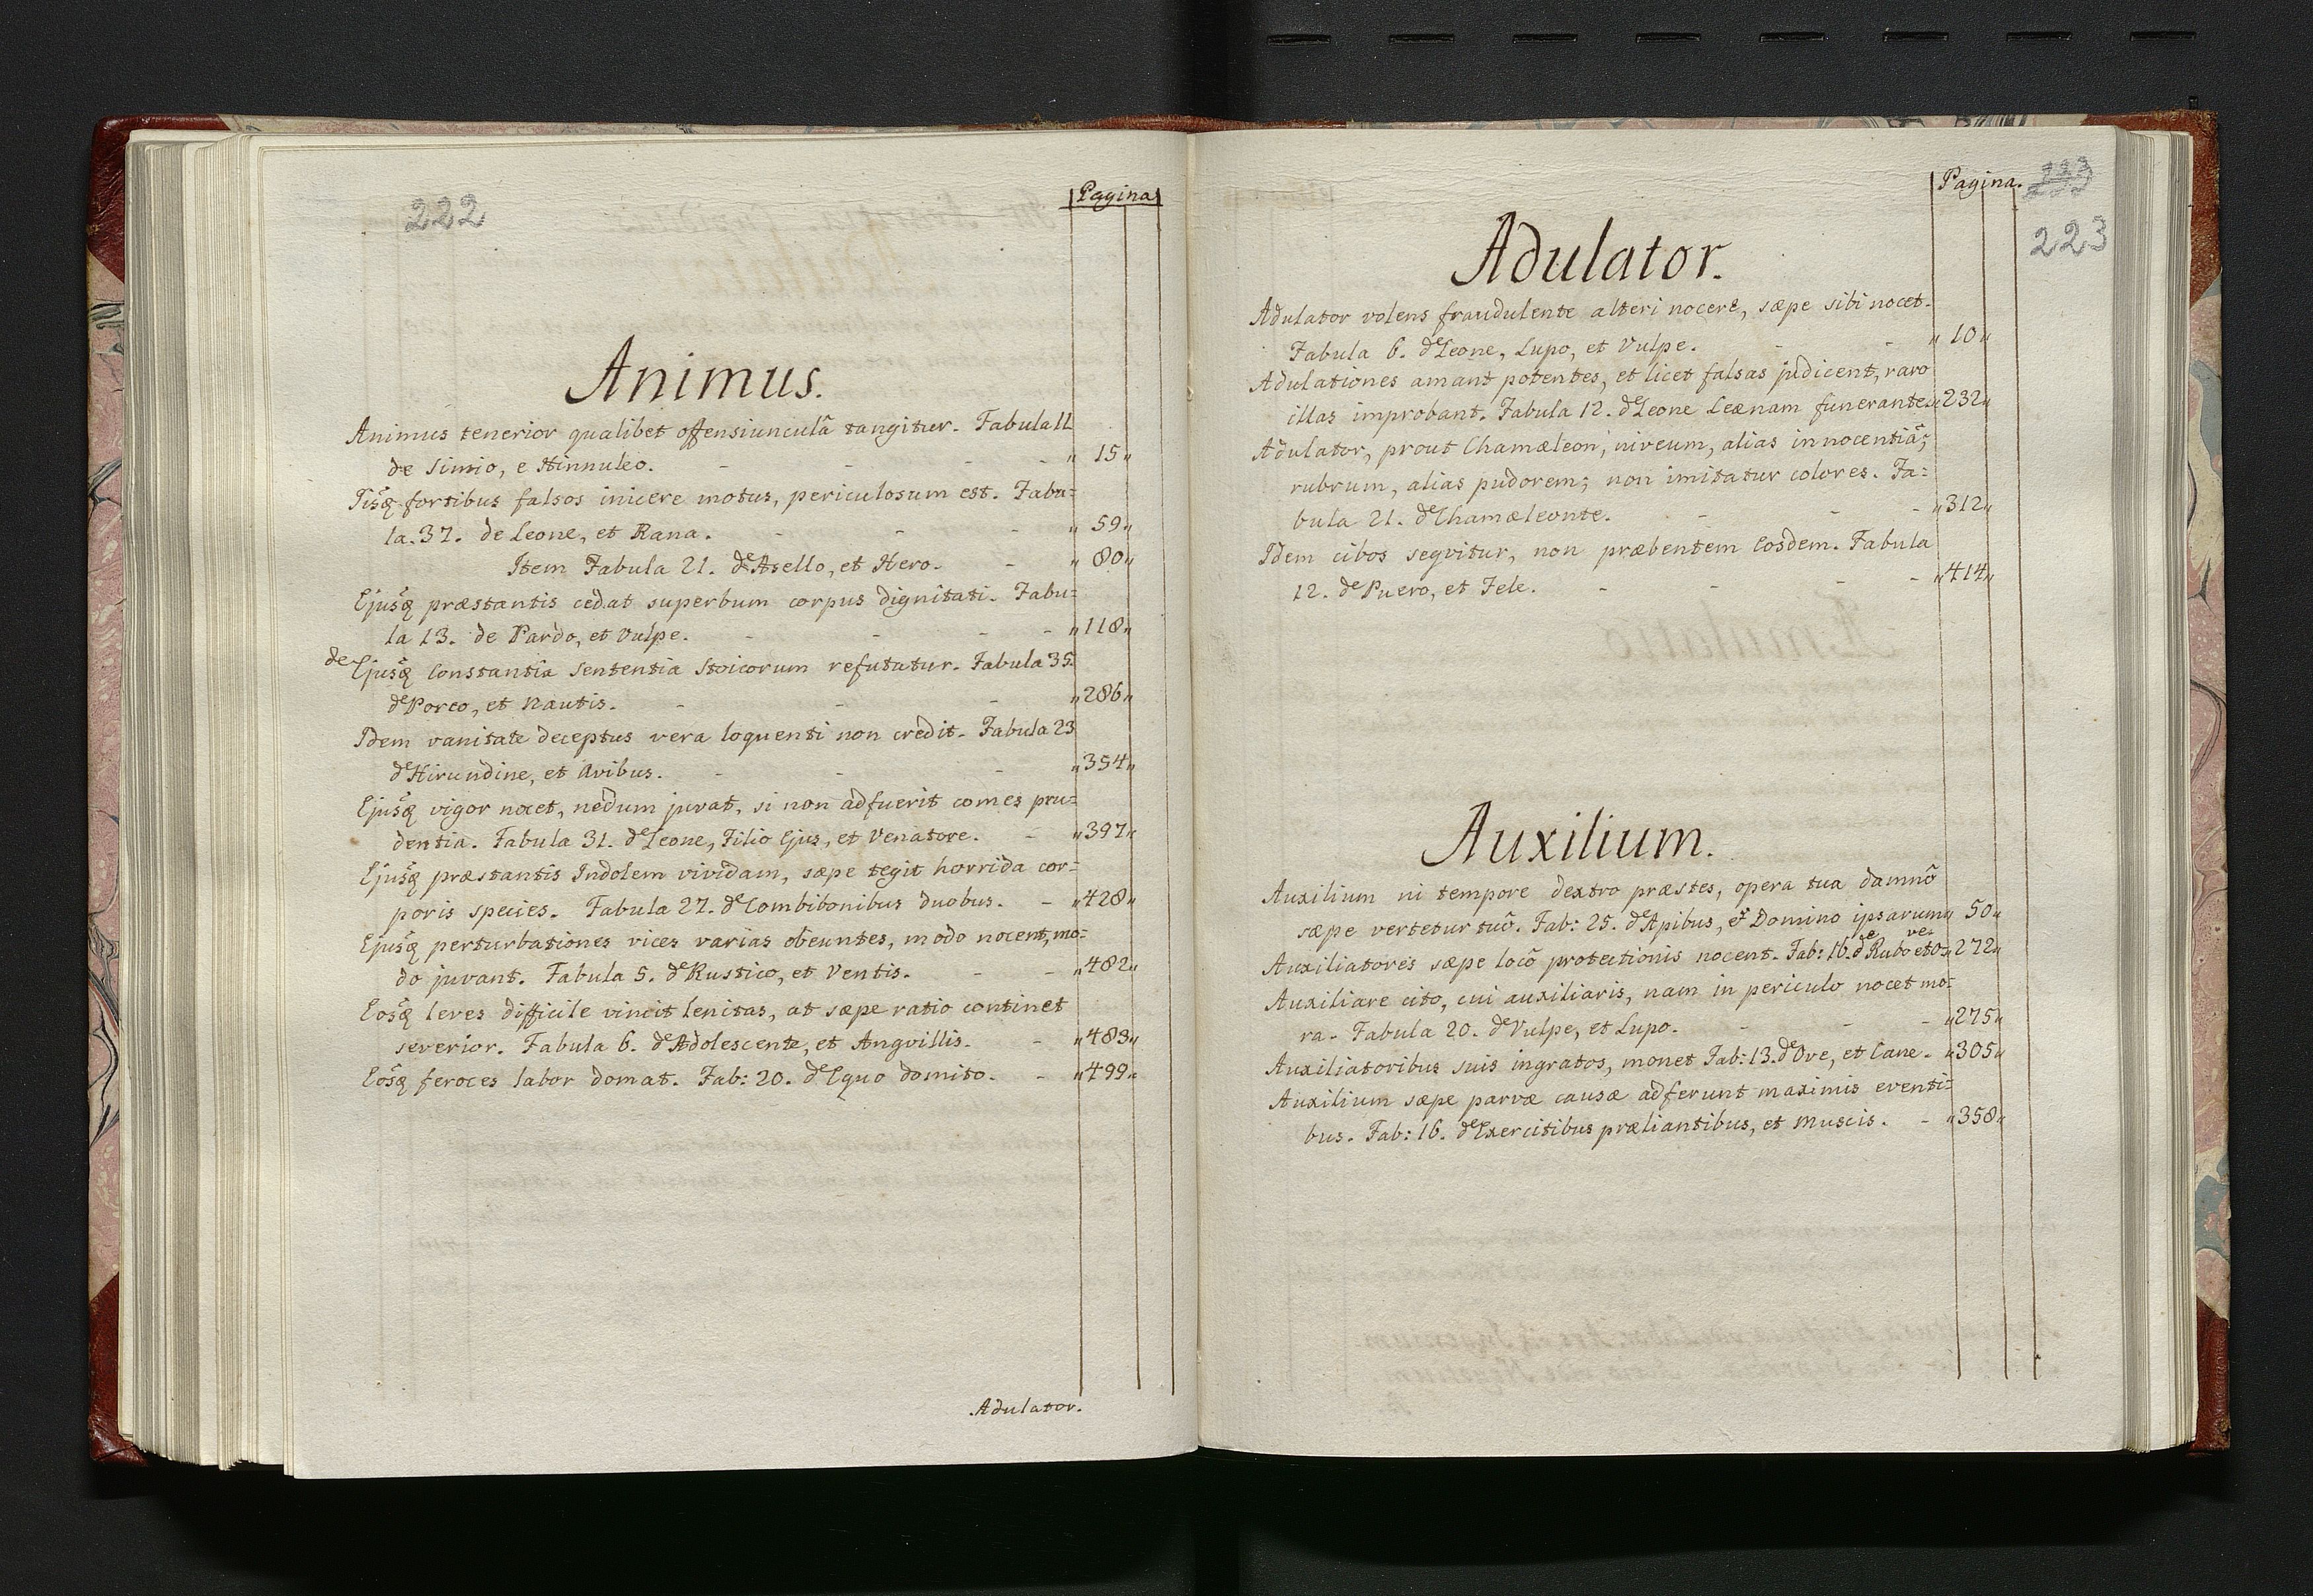 222
Pagina
Animus.
Animus tenerior qualibet offensiunculâ tangitur. Fabula 11
de Simio, e Hinnuleo. - - - - „ 15 „
Iisq̃ fortibus falsos inicere motus, periculosum est. Fabu=
la. 37. de Leone, et Rana. - - - „ 59 „
Item Fabula 21. de Asello, et Hero. - „ 80 „
Ejusq̃ præstantis cedat superbum corpus dignitati. Fabu=
la 13. de Pardo, et Vulpe. - - - - „ 118 „
de Ejusq̃ Constantia Sententia Stoicorum refutatur. Fabula 35.
de Porco, et Nautis. - - - „ 286 „
Idem vanitate deceptus vera loquenti non credit. Fabula 23
de Hirundine, et Avibus. - - - „ 354 „
Ejusq̃ vigor nocet, nedum juvat, si non adfuerit comes pru=
dentia. Fabula 31. de Leone, Filio Ejus, et Venatore. - „ 397 „
Ejusq̃ præstantis Indolem vividam, sæpe tegit horrida cor=
poris species. Fabula 27. de Combibonibus duobus. - „ 428 „
Ejusq̃ perturbationes vices varias obeuntes, modo nocent, mo=
do juvant. Fabula 5. de Rustico, et Ventis. - - „ 482 „
Eosq̃ leves difficile vincit lenitas, at sæpe ratio continet
severior. Fabula 6. de Adolescente, et Angvillis. - „ 483 „
Eosq̃ feroces labor domat. Fab: 20. de Equo domito. - „ 499 „
Adulator.
Pagina.
223
Adulator.
Adulator volens fraudulente alteri nocere, sæpe sibi nocet.
Fabula 6. de Leone, Lupo, et Vulpe. - - „ 10 „
Adulationes amant potentes, et licet falsas judicent, raro
illas improbant. Fabula 12. de Leone Leænam funerante. „ 232 „
Adulator, prout Chamæleon, niveum, alias innocentiã;
rubrum, alias pudorem; non imitatur colores. Fa=
bula 21. de Chamæleonte. - - - „ 312 „
Idem cibos seqvitur, non præbentem Eosdem. Fabula
12. de Puero, et Fele. - - - - „ 414 „
Auxilium.
Auxilium ni tempore dextro præstes, opera tua damnô
sæpe vertetur tuô. Fab: 25. de Apibus, et Domino ipsarum „ 50 „
Auxiliatores sæpe locô protectionis nocent. Fab: 16. de Rubo et Ove. „ 272 „
Auxiliare cito, cui auxiliaris, nam in periculo nocet mo=
ra. Fabula 20. de Vulpe, et Lupo. - - - „ 275 „
Auxiliatoribus suis ingratos, monet Fab: 13. de Ove, et Cane. „ 305 „
Auxilium sæpe parvæ causæ adferunt maximis eventi=
bus. Fab: 16. de Exercitibus præliantibus, et Muscis. - „ 358 „